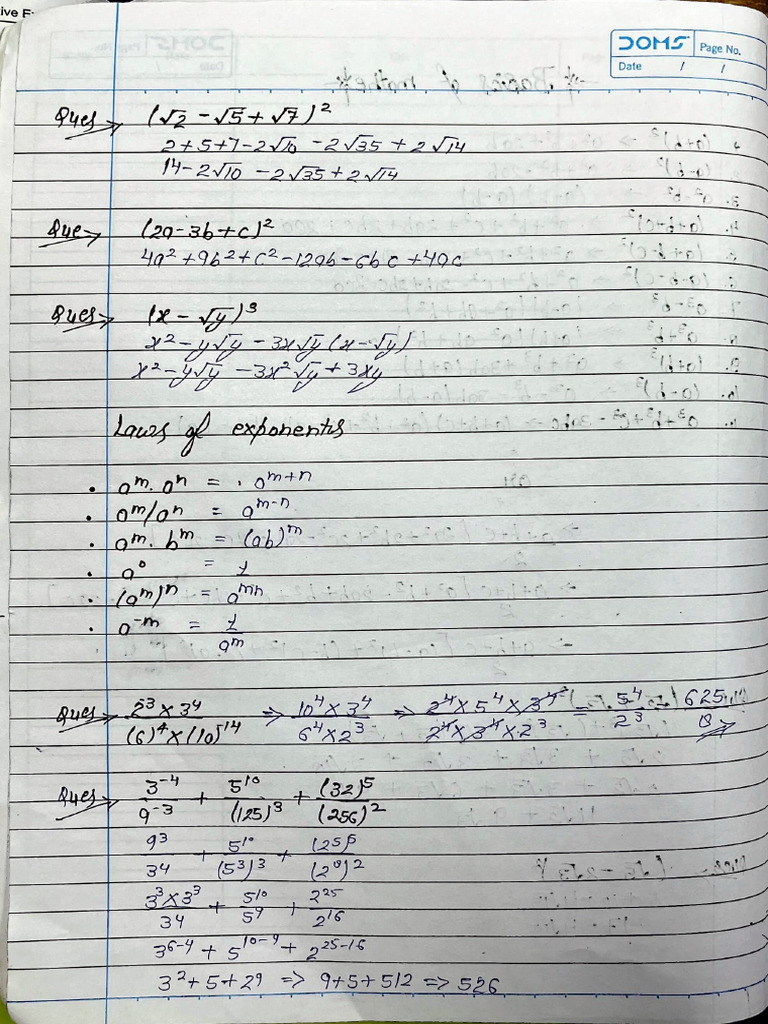 ive E
DOMS Page No.
Date / /
Ques → (√2 - √5 + √7)²
2+5+7-2√10 - 2√35 + 2√14
14-2√10 - 2√35 + 2√14
Que → (2a-3b+c)²
4a²+9b²+c²-12ab-6bc+4ac
Ques → (x - √y)³
x²-y√y - 3x√y (x-√y)
x²-y√y - 3x²√y + 3xy
Laws of exponents
• aᵐ. aⁿ = . aᵐ⁺ⁿ
• aᵐ/aⁿ = aᵐ⁻ⁿ
• aᵐ. bᵐ = (ab)ᵐ
• a⁰ = 1
• (aᵐ)ⁿ = aᵐⁿ
• a⁻ᵐ = 1/aᵐ
Ques → 2³×3⁴/(6)⁴×(10)¹⁴ ⇒ 10⁴×3⁴/6⁴×2³ ⇒ 2⁴×5⁴×3⁴/2⁴×3⁴×2³ = 5⁴/2³ 625/8
Ques → 3⁻⁴/9⁻³ + 5¹⁰/(125)³ + (32)⁵/(256)²
9³/34 + 5¹⁰/(5³)³ + (25)⁵/(2⁸)²
3³×3³/34 + 5¹⁰/5⁹ + 2²⁵/2¹⁶
3⁶⁻⁴ + 5¹⁰⁻⁹ + 2²⁵⁻¹⁶
3²+5+29 ⇒ 9+5+512 ⇒ 526